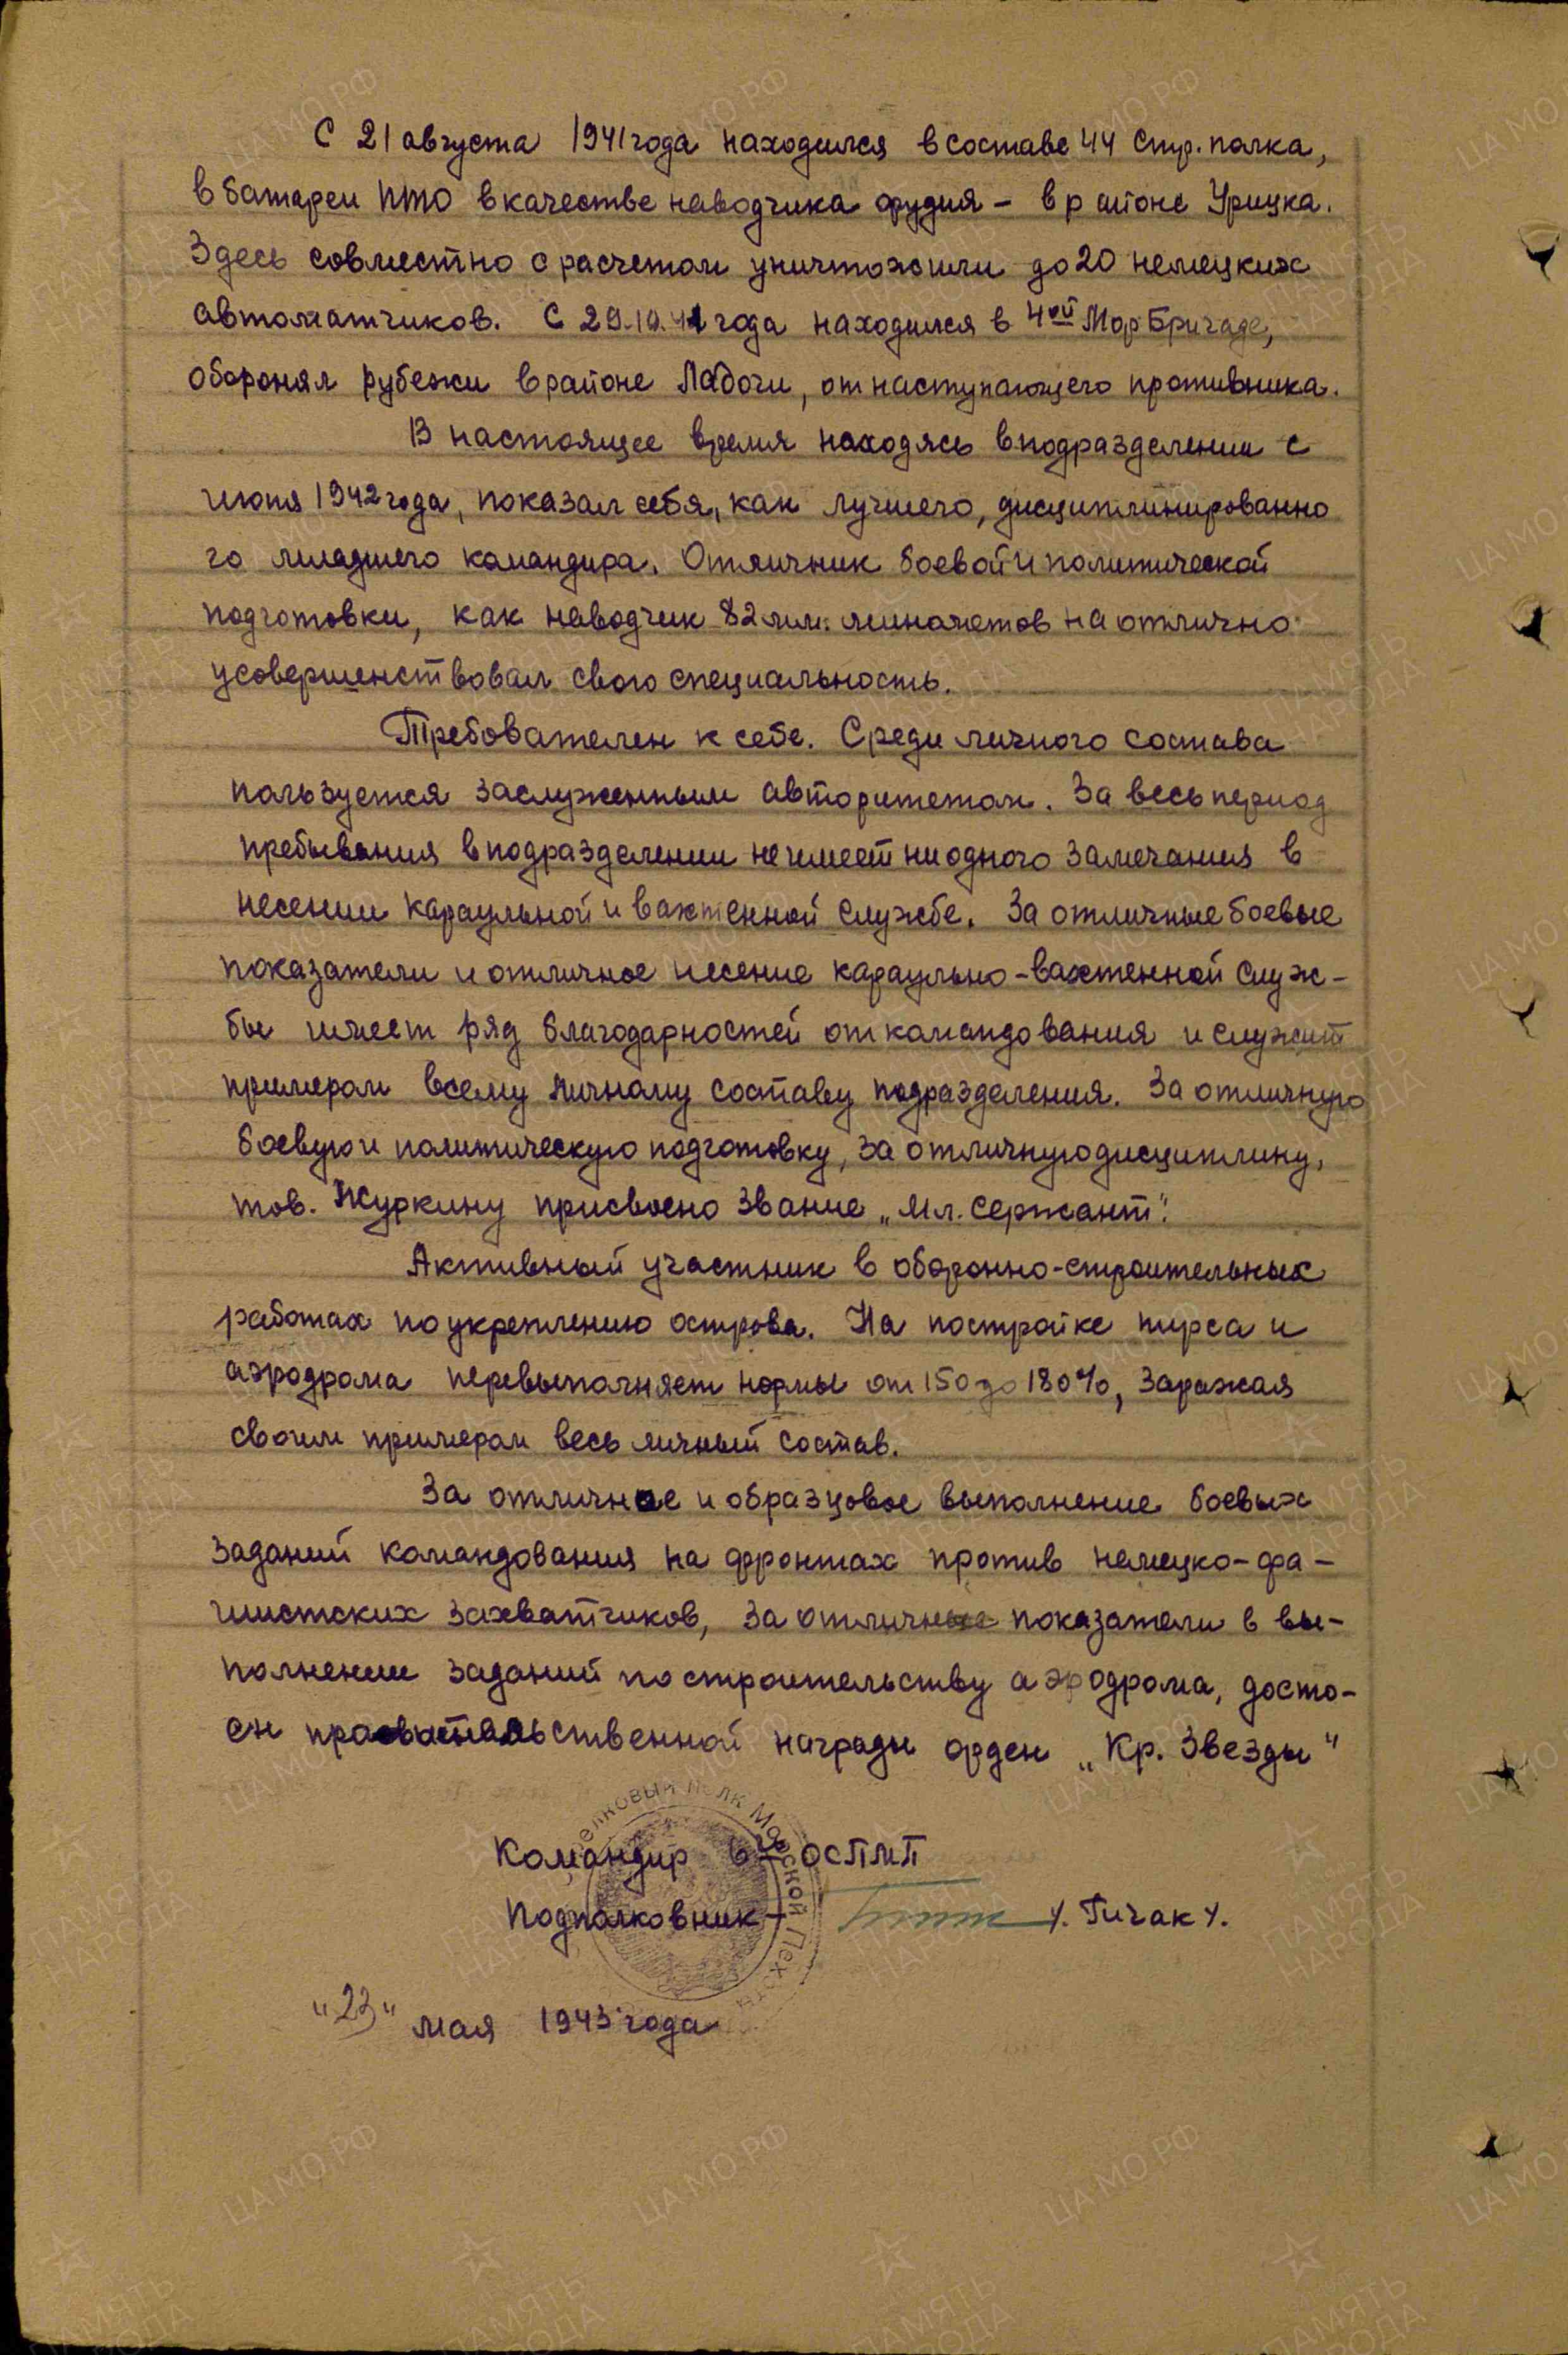 С 21 августа 1941 года находился в составе 44 стр. полка,
в батареи ПТО в качестве наводчика орудия – в районе Урицка.
Здесь совместно с расчетом уничтожили до 20 немецких
автоматчиков. С 29.10.41 года находился в 4ой МорБригаде,
оборонял рубежи в районе Ладоги, от наступающего противника.
В настоящее время находясь в подразделении с
июня 1942 года, показал себя, как лучшего, дисциплинированно
го младшего командира. Отличник боевой и политической
подготовки, как наводчик 82 м.м. минометов на отлично
усовершенствовал свою специальность.
Требователен к себе. Среди личного состава
пользуется заслуженным авторитетом. За весь период
пребывания в подразделении не имеет ни одного замечания в
несении караульной и вахтенной службе. За отличные боевые
показатели и отличное несение караульно-вахтенной служ-
бы имеет ряд благодарностей от командования и служит
примером всему личному составу подразделения. За отличную
боевую и политическую подготовку, за отличную дисциплину,
тов. Журкину присвоено звание „Мл. сержант".
Активный участник в оборонно-строительных
работах по укреплению острова. На постройке пирса и
аэродрома перевыполняет нормы от 150 до 180%, заражая
своим примером весь личный состав.
За отличное и образцовое выполнение боевых
заданий командования на фронтах против немецко-фа-
шистских захватчиков, за отличные показатели в вы-
полнении заданий по строительству аэродрома, досто-
ен правительственной награды орден „Кр. Звезды"
Командир ОСПМП
Подполковник – /. Гичак /.
"23" мая 1943 года
стрелковый полк Морской Пехоты
ЦА МО РФ
ПАМЯТЬ НАРОДА